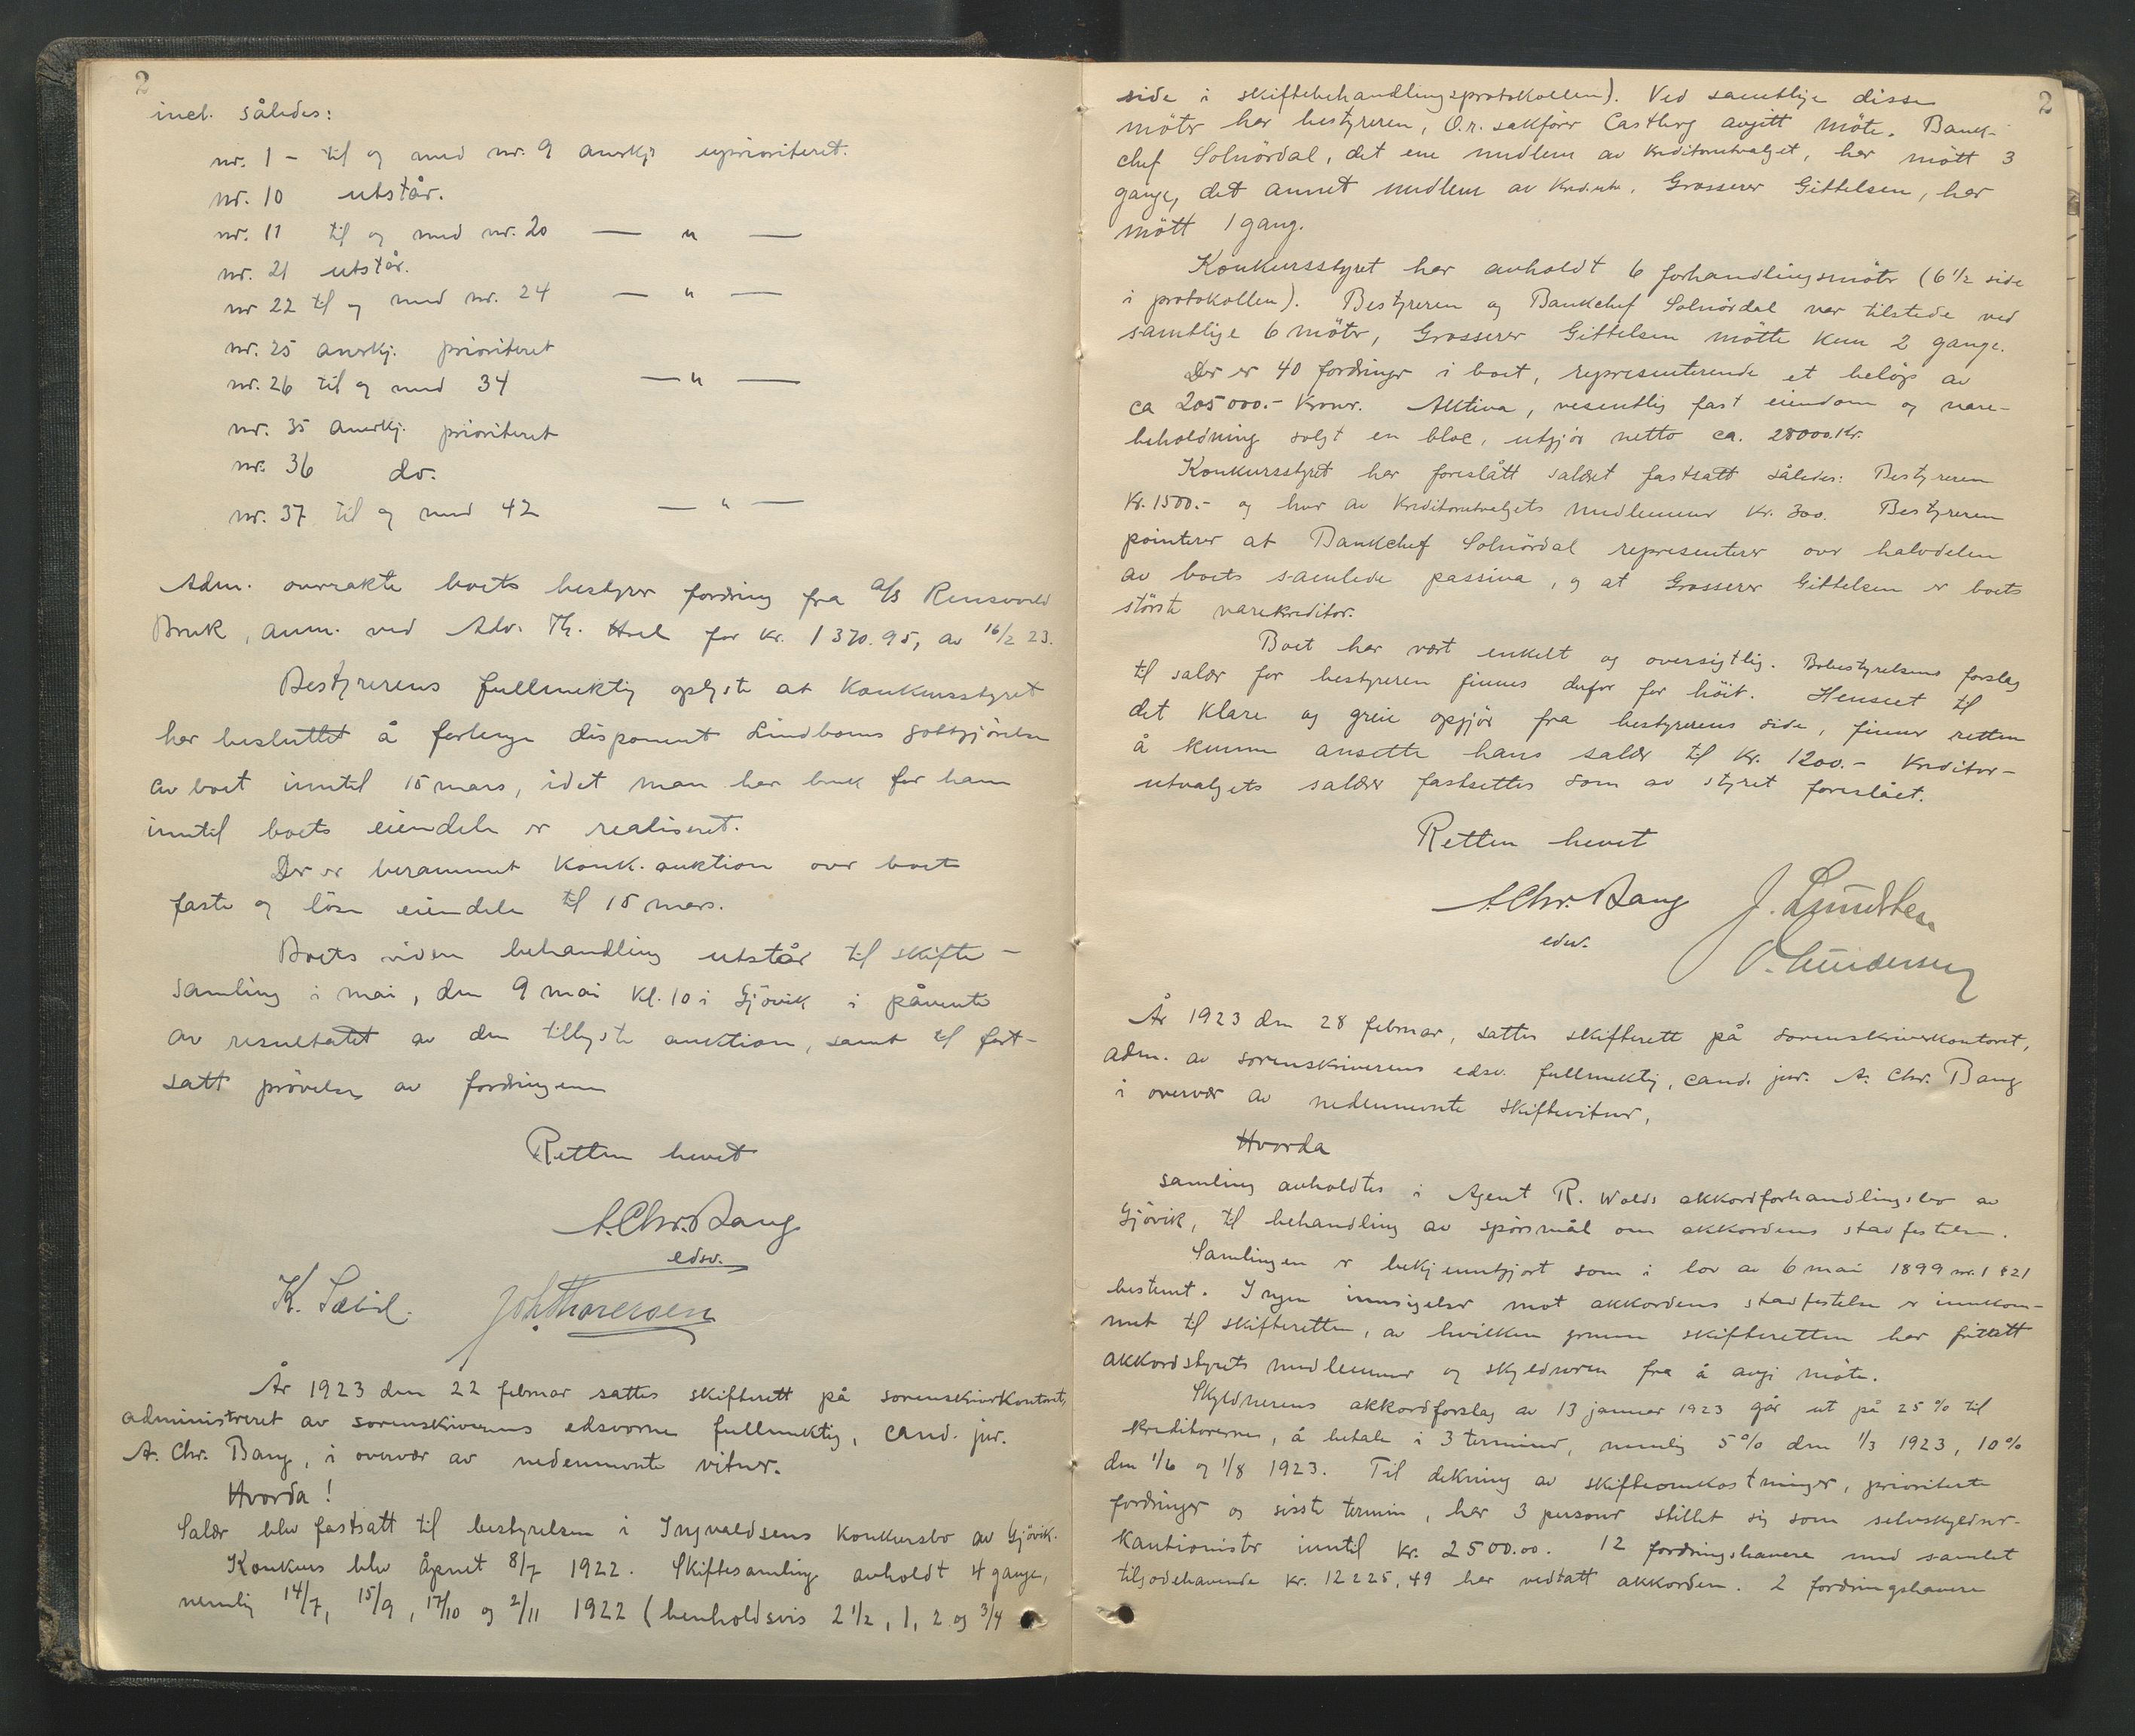 2
incl. således:
nr. 1 - til og med nr. 9 anerkj. uprioriteret.
nr. 10 utstår.
nr. 11 til og med nr. 20 — " —
nr. 21 utstår.
nr 22 til og med nr. 24 — " —
nr. 25 anerkj. prioriteret
nr. 26 til og med 34 — " —
nr. 35 anerkj. prioriteret
nr. 36 do.
nr. 37 til og med 42 — " —
Adm. overrakte boets bestyrer fordring fra A/S
Bruk, anm. ved Adv. Th. for kr. 1370.95, av 16/2 23.
Bestyrerens fullmektig oplyste at konkursstyret
har besluttet å forlenge disponent Lindboms godtgjörelse
av boet inntil 15 mars, idet man har bruk for ham
inntil boets eiendele er realiseret.
Der er berammet konk. auktion over boets
faste og löse eiendele til 15 mars.
Boets videre behandling utstår til skifte-
samling i mai, den 9 mai kl. 10 i Gjövik i påvente
av resultatet av den tillyste auktion, samt til fort-
satt prövelse av fordringene
Retten hevet
A. Chr. Bang
edsv.
K.
Joh Thoresen
År 1923 den 22 februar sattes skifterett på sorenskriverkontoret,
administreret av sorenskriverens edsvorne fullmektig, cand. jur.
A. Chr. Bang, i overvær av nedennevnte vitner.
Hvorda!
Salær blev fastsatt til bestyrelsen i Ingvaldsens konkursbo av Gjövik.
Konkurs blev åpnet 8/7 1922. Skiftesamling avholdt 4 gange,
nemlig 14/7, 15/9, 17/10 og 2/11 1922 (henholdsvis 2 1/2, 1, 2 og 3/4
2
side i skiftebehandlingsprotokollen). Ved samtlige disse
möter har bestyreren, O.r. sakförer Castberg avgitt möte. Bank-
chef Solnördal, det ene medlem av kreditorutvalget, har mött 3
gange, det annet medlem av kred.utv. Grosserer Gittelsen, har
mött 1 gang.
Konkursstyret har avholdt 6 forhandlingsmöter (6 1/2 side
i protokollen). Bestyreren og Bankchef Solnördal var tilstede ved
samtlige 6 möter, Grosserer Gittelsen mötte kun 2 gange.
Der er 40 fordringer i boet, representerende et belöp av
ca 205000.- kroner. Aktiva, vesentlig fast eiendom og vare-
beholdning solgt en bloc, utgjör netto ca. 28000. kr.
Konkursstyret har foreslått salæret fastsatt således: Bestyreren
kr. 1500.- og hver av kreditorutvalgets medlemmer kr. 300. Bestyreren
pointerer at Bankchef Solnördal representerer over halvdelen
av boets samlede passiva, og at Grosserer Gittelsen er boets
störste varekreditor.
Boet har vært enkelt og oversigtlig. Bobestyrelsens forslag
til salær for bestyreren finnes derfor for höit. Henseet til
det klare og greie opgjör fra bestyrerens side, finner retten
å kunne ansette hans salær til kr. 1200.- Kreditor-
utvalgets salærer fastsettes som av styret foreslået.
Retten hevet
A. Chr. Bang
edsv.
J.
År 1923 den 28 februar, sattes skifterett på sorenskriverkontoret,
adm. av sorenskriverens edsv. fullmektig, cand. jur. A. Chr. Bang
i overvær av nedennevnte skiftevitner,
Hvorda
samling avholdtes i Agent R. Wolds akkordforhandlingsbo av
Gjövik, til behandling av spörsmål om akkordens stadfestelse.
Samlingen er bekjenntgjort som i lov av 6 mai 1899 nr. 1 § 21
bestemt. Ingen innsigelser mot akkordens stadfestelse er innkom-
met til skifteretten, av hvilken grunn skifteretten har fritatt
akkordstyrets medlemmer og skyldneren fra å avgi möte.
Skyldnerens akkordforslag av 13 januar 1923 går ut på 25 % til
kreditorerne, å betale i 3 terminer, nemlig 5% den 1/3 1923, 10%
den 1/6 og 1/8 1923. Til dekning av skifteomkostninger, prioriterte
fordringer og siste termin, har 3 personer stillet sig som selvskyldner-
kautionister inntil kr. 2500.00. 12 fordringshavere med samlet
tilgodehavende kr. 12225,49 har vedtatt akkorden. 2 fordringshavere